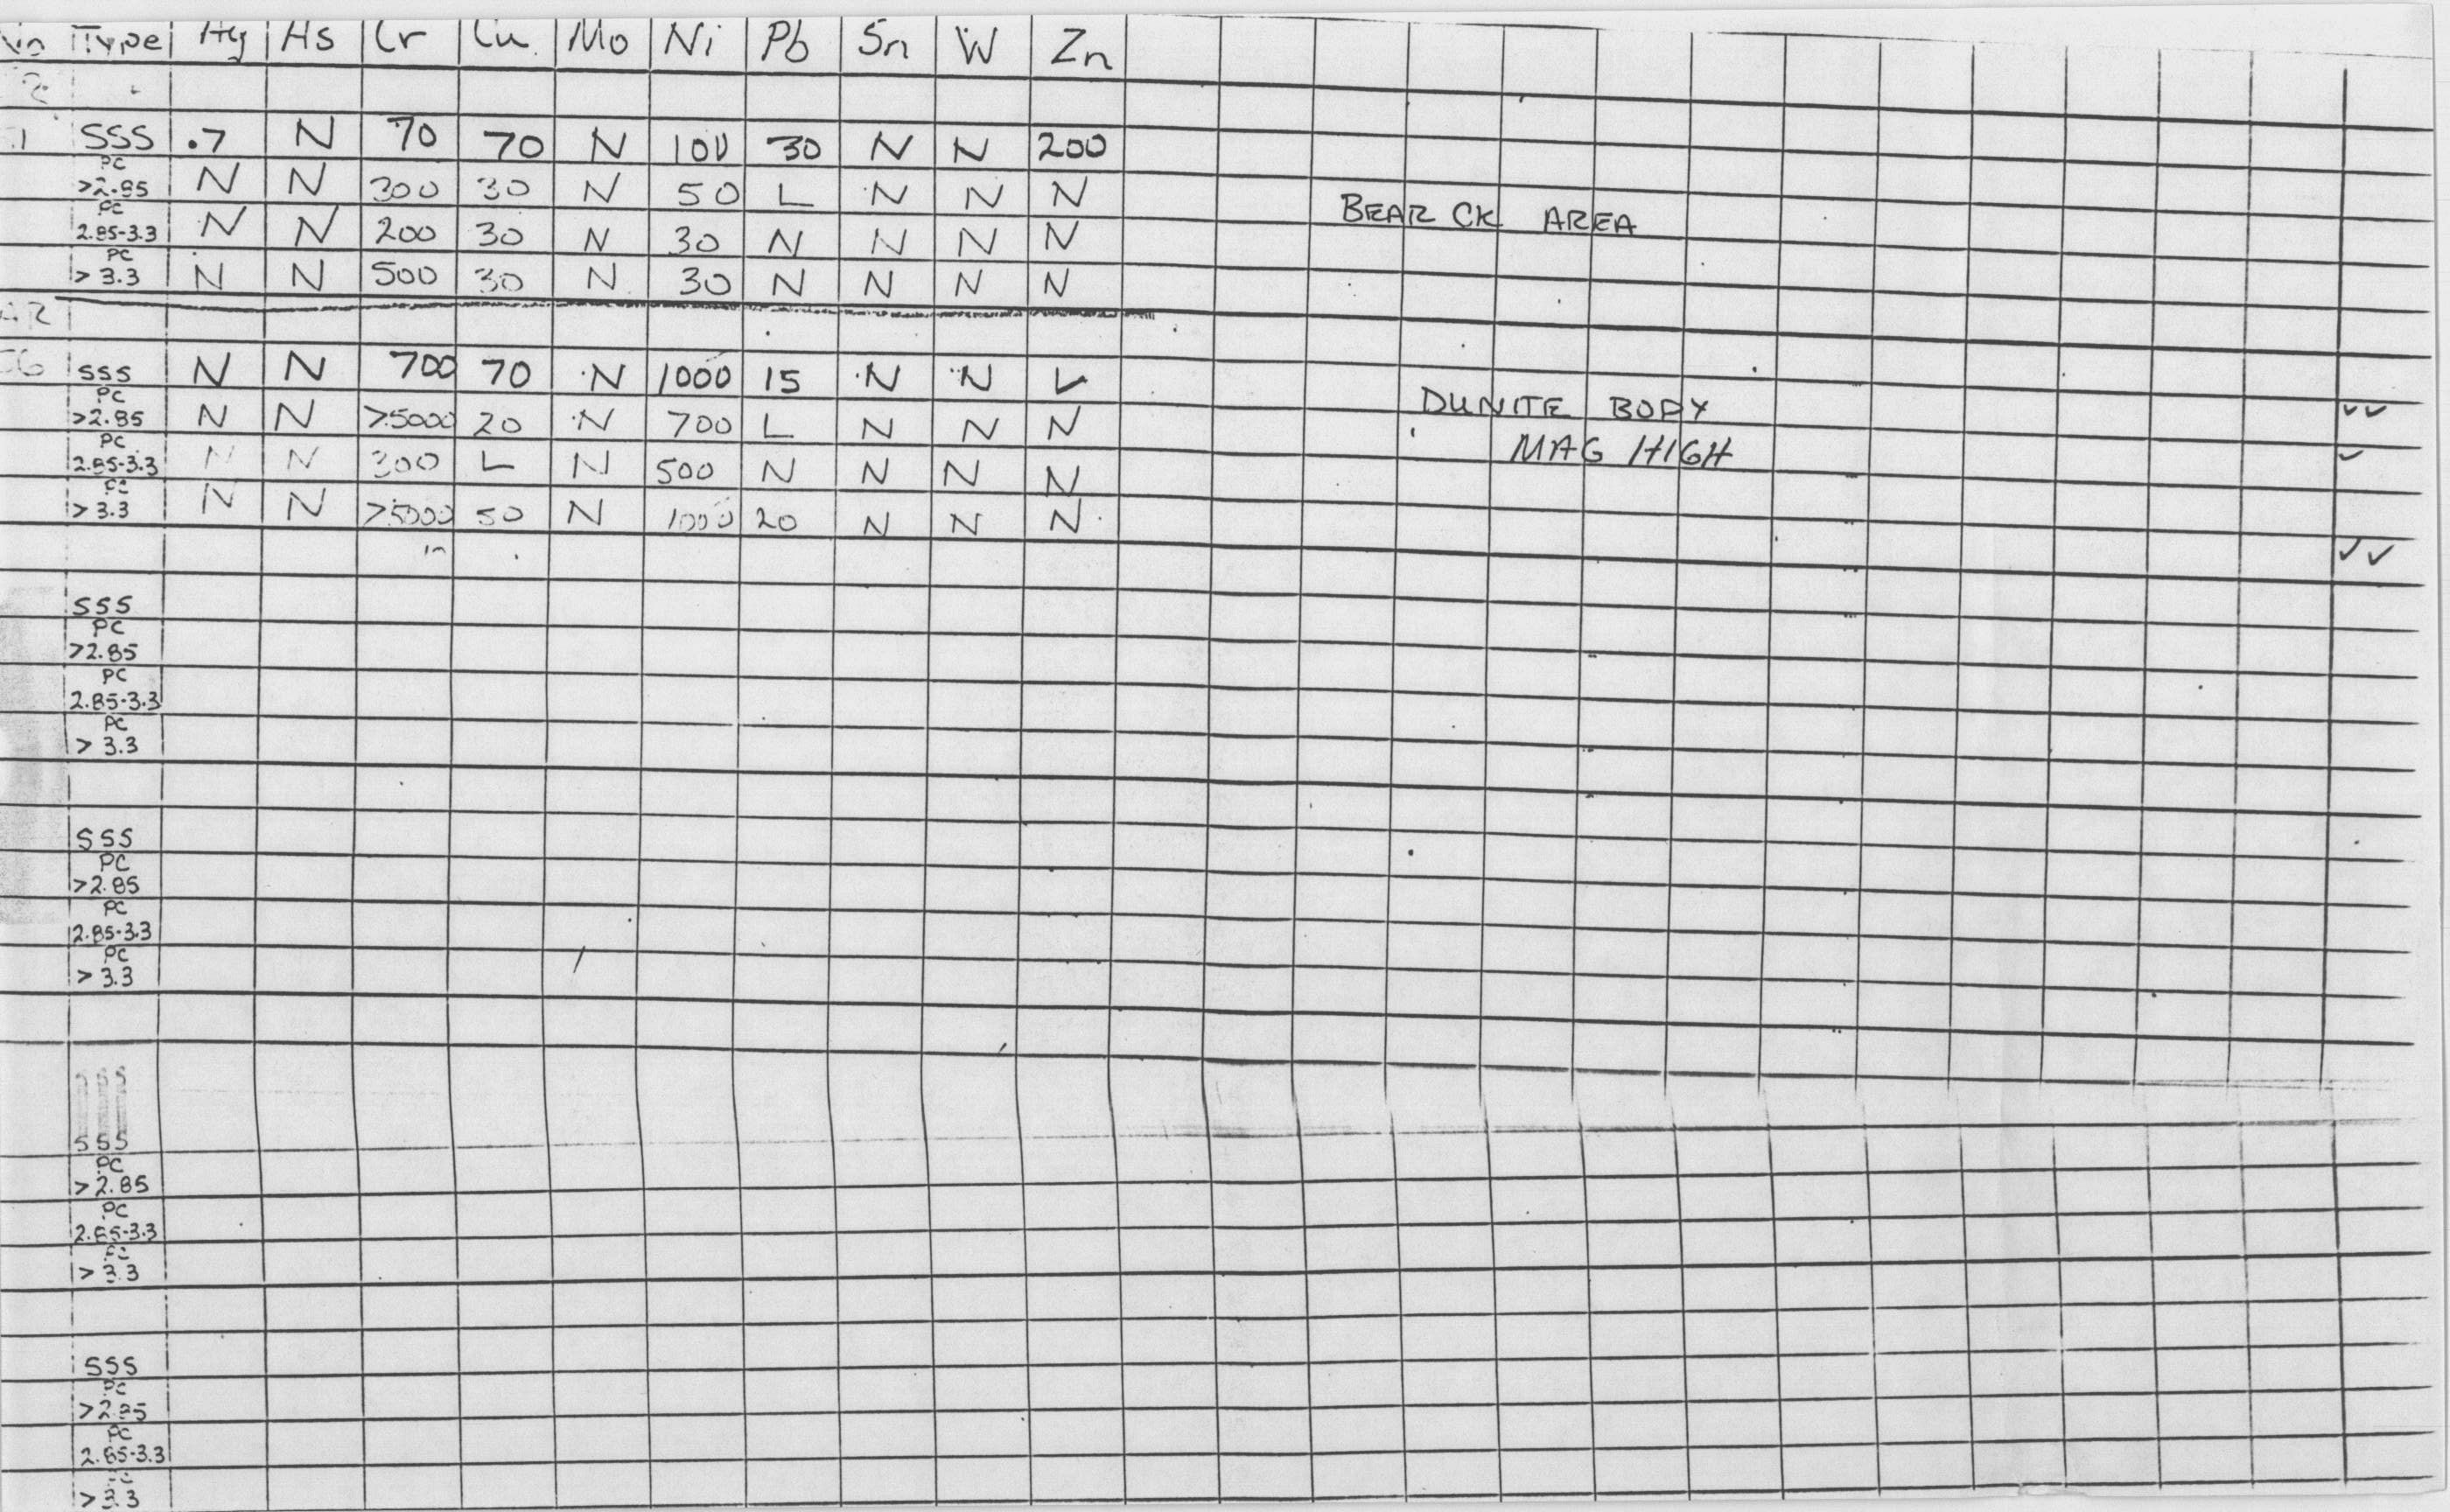 No Type Ag As Cr Cu Mo Ni Pb Sn W Zn
1 SSS .7 N 70 70 N 100 30 N N 200
PC
>2.85 N N 300 30 N 50 L N N N
BEAR CK AREA
PC
2.85-3.3 N N 200 30 N 30 N N N N
PC
>3.3 N N 500 30 N 30 N N N N
AR
SSS N N 700 70 N 1000 15 N N L
PC
>2.85 N N >5000 20 N 700 L N N N
DUNITE BODY ✓✓
PC
2.85-3.3 N N 300 L N 500 N N N N
MAG HIGH ✓
PC
>3.3 N N >5000 50 N 1000 20 N N N
✓✓
SSS
PC
>2.85
PC
2.85-3.3
PC
>3.3
SSS
PC
>2.85
PC
2.85-3.3
PC
>3.3
SSS
SSS
PC
>2.85
PC
2.85-3.3
PC
>3.3
SSS
PC
>2.85
PC
2.85-3.3
PC
>3.3